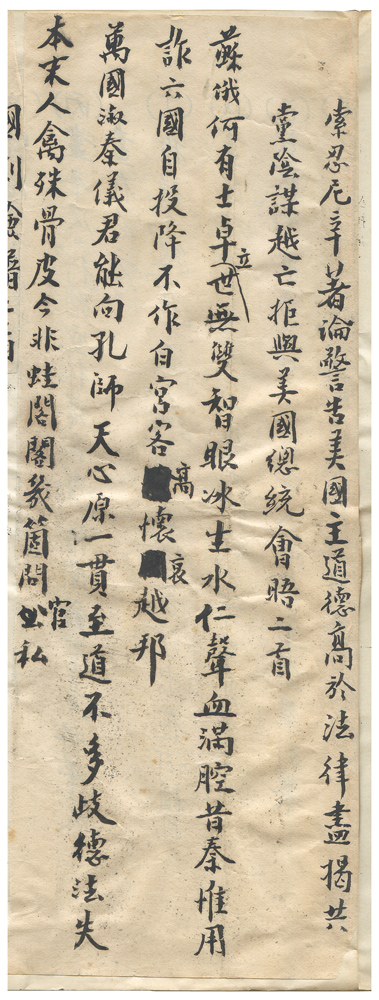 索忍尼辛著論警告美國主道德高於法律盡揭共
黨陰謀越亡拒與美國總統會晤二首
蘇俄何有士卓立世無雙智眼冰生水仁聲血滿腔昔秦惟用
詐六國自投降不作白宮客高懷哀越邦
萬國淑秦儀君能向孔師天心原一貫至道不多歧德法失
本末人禽殊骨皮今非蛙閣閣幾箇問官私